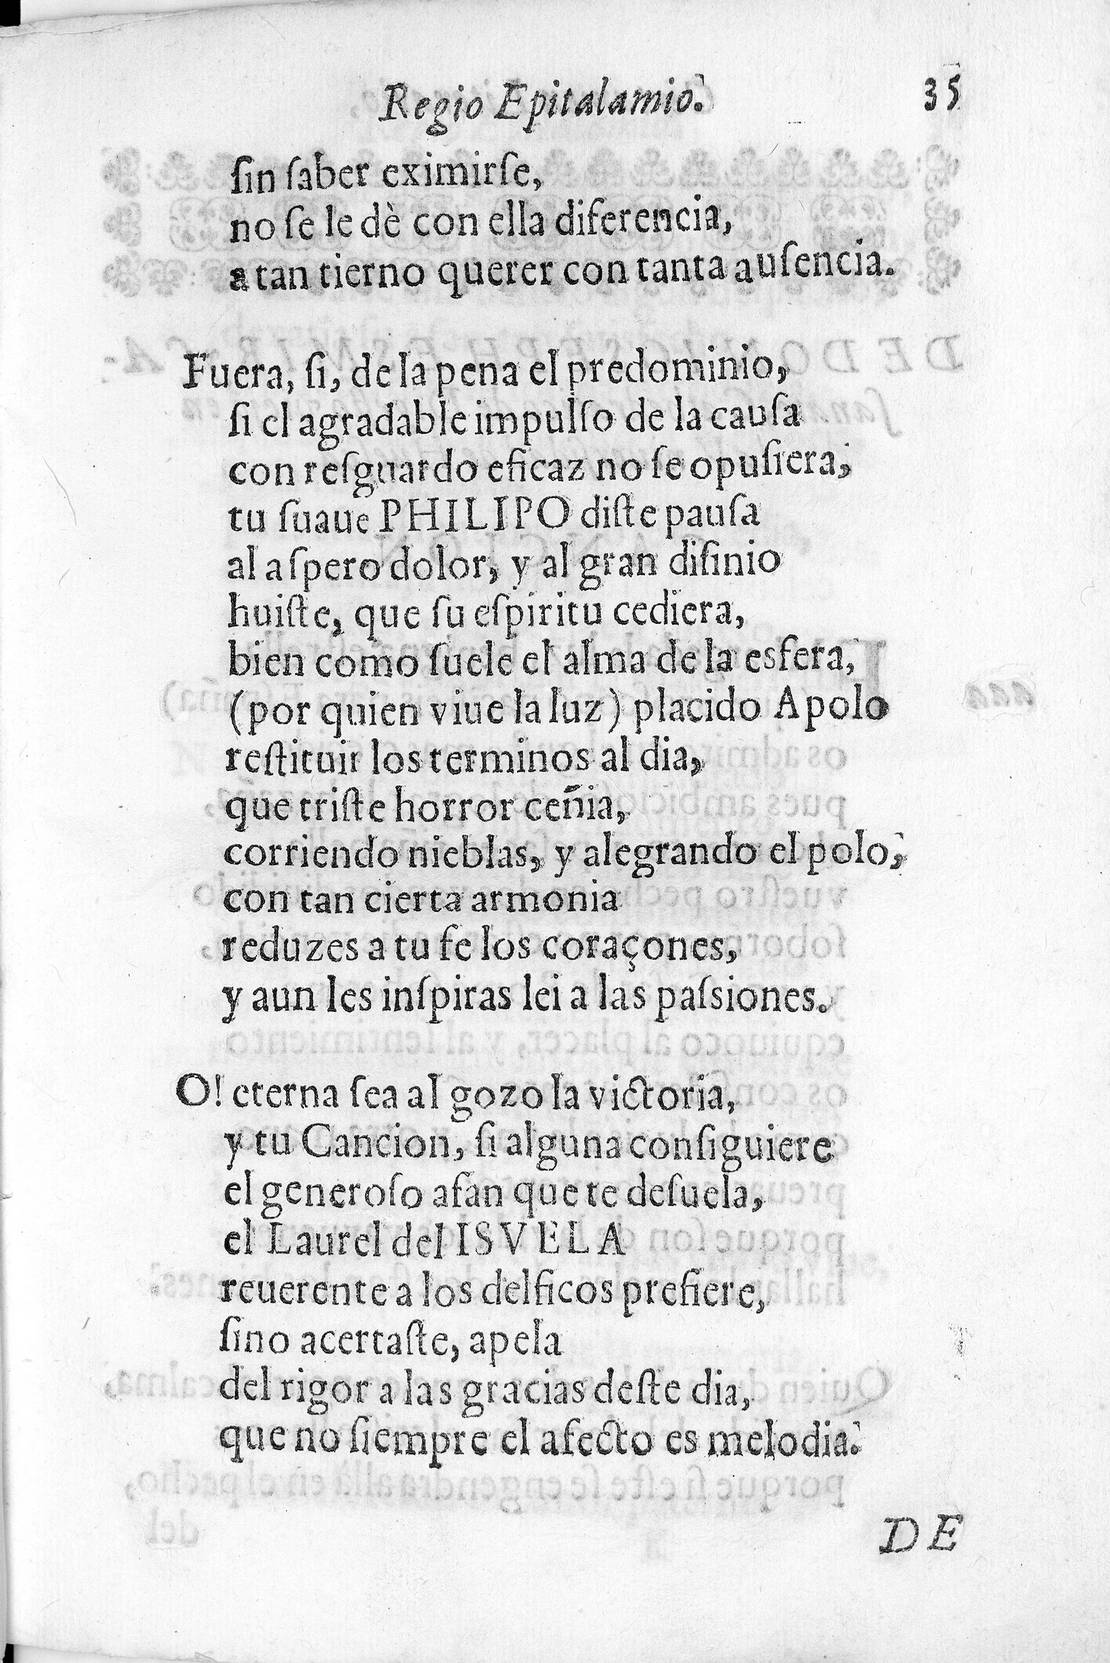 Regio Epitalamio. 35
ſin ſaber eximirſe,
no ſe le dè con ella diferencia,
a tan tierno querer con tanta auſencia.
Fuera, ſi, de la pena el predominio,
ſi el agradable impulſo de la cauſa
con reſguardo eficaz no ſe opuſiera,
tu ſuaue PHILIPO diſte pauſa
al aſpero dolor, y al gran diſinio
huiſte, que ſu eſpiritu cediera,
bien como ſuele el alma de la esfera,
(por quien viue la luz) placido Apolo
reſtituir los terminos al dia,
que triſte horror ceñia,
corriendo nieblas, y alegrando el polo,
con tan cierta armonia
reduzes a tu fe los coraçones,
y aun les inſpiras lei a las paſsiones.
O! eterna ſea al gozo la victoria,
y tu Cancion, ſi alguna conſiguiere
el generoſo afan que te deſuela,
el Laurel del ISVELA
reuerente a los delficos prefiere,
ſino acertaſte, apela
del rigor a las gracias deſte dia,
que no ſiempre el afecto es melodia.
DE